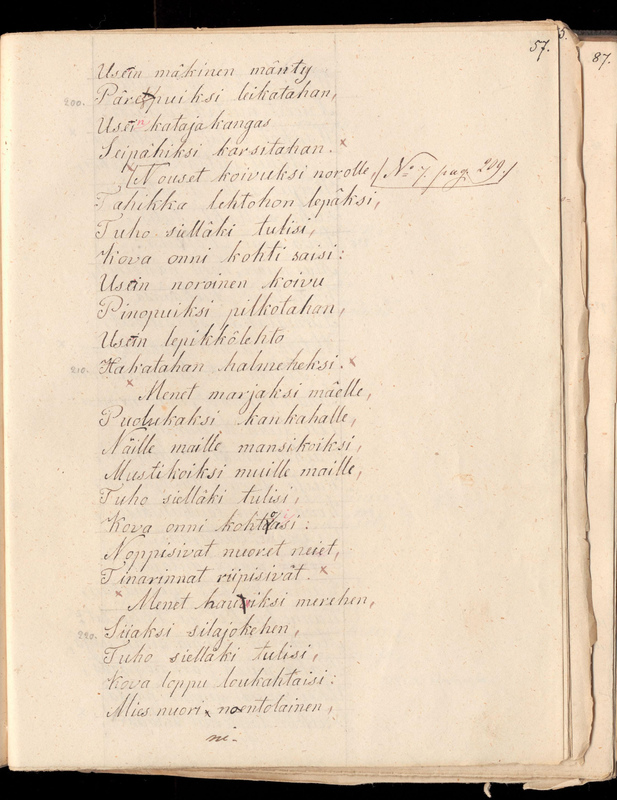 57.
87.
Usein mäkinen mänty
200. Pärepuiksi leikatahan,
Usein katajakangas
Seipähiksi karsitahan. x
x Nouset koivuksi norolle, (No 7. pag. 209.)
Tahikka lehtohon lepäksi,
Tuho sielläki tulisi,
Kova onni kohti saisi:
Usein noroinen koivu
Pinopuiksi pilkotahan,
Usein lepikkölehto
210. Hakatahan halmeheksi. x
x Menet marjaksi mäelle,
Puolukaksi kankahalle,
Näille maille mansikoiksi,
Mustikoiksi muille maille,
Tuho sielläki tulisi,
Kova onni kohtäisi:
Noppisivat nuoret neiet,
Tinarinnat riipisivät. x
x Menet hauiksi merehen,
220. Siiaksi silajokehen,
Tuho sielläki tulisi,
Kova loppu loukahtaisi:
Mies nuori x noentolainen,
ni-